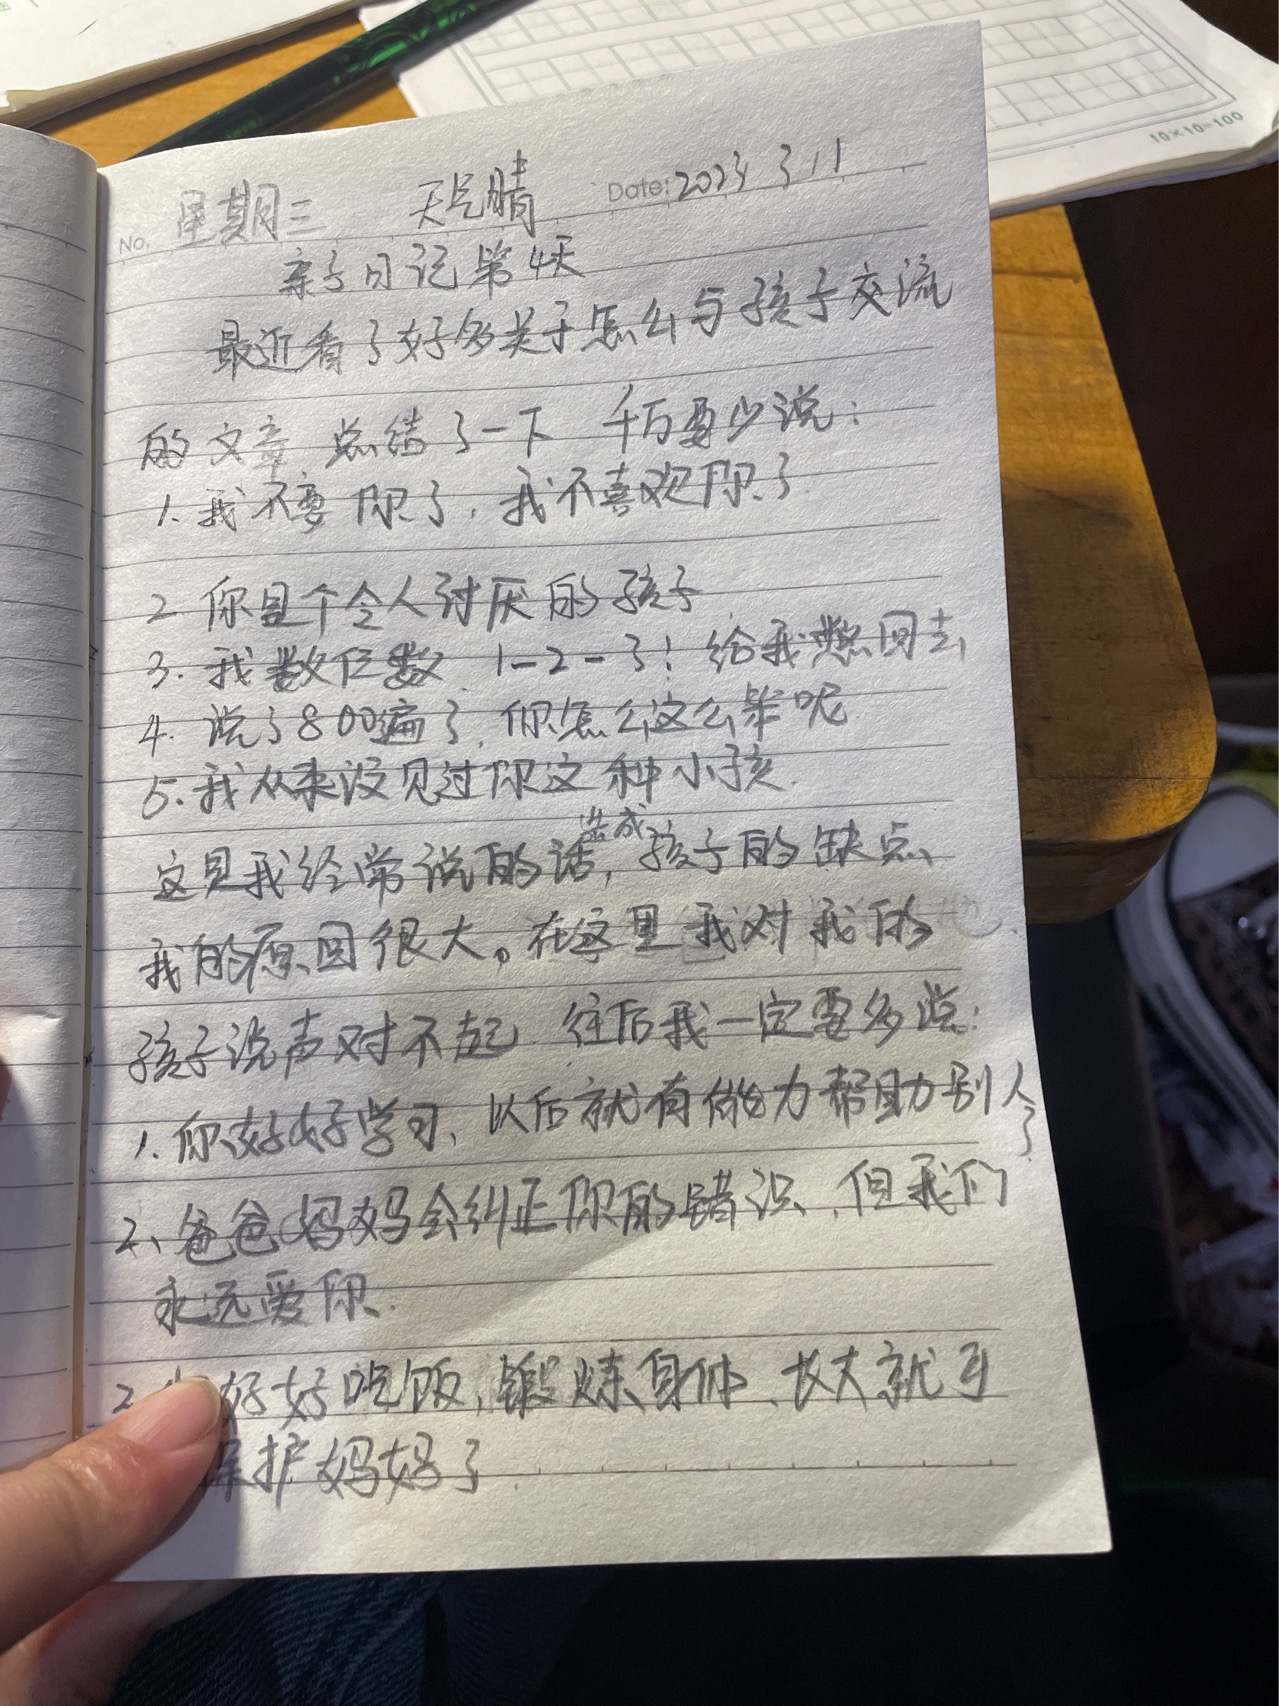 10×10=100
No. 星期三 天气晴 Date: 2023 3 11
亲子日记第4天
最近看了好多关于怎么与孩子交流
的文章 总结了一下 千万要少说:
1. 我不要你了, 我不喜欢你了
2. 你是个令人讨厌的孩子
3. 我数仨数 1-2-3! 给我憋回去
4. 说了800遍了, 你怎么这么笨呢
5. 我从来没见过你这种小孩.
这是我经常说的话, 造成孩子的缺点、
我的原因很大。在这里我对我的
孩子说声对不起 往后我一定要多说:
1. 你好好学习、以后就有能力帮助别人了
2、爸爸妈妈会纠正你的错误、但我们
永远爱你.
2. 好好吃饭, 锻炼身体、长大就可
保护妈妈了